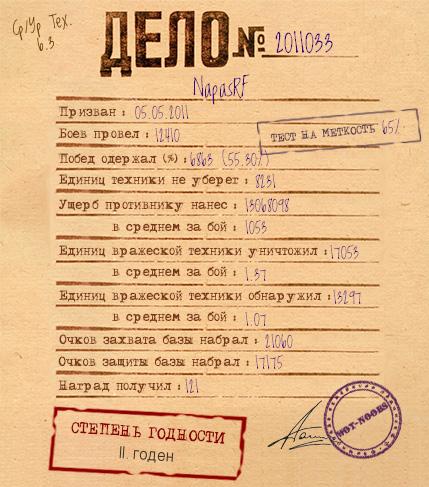 Ср/Ур Тех.
6.3
ДЕЛО № 2011033
NapasRF
Призван : 05.05.2011
Боев провел : 12410
ТЕСТ НА МЕТКОСТЬ 65%
Побед одержал (%) : 6863 (55.30%)
Единиц техники не уберег : 8231
Ущерб противнику нанес : 13068098
в среднем за бой : 1053
Единиц вражеской техники уничтожил : 17053
в среднем за бой : 1.37
Единиц вражеской техники обнаружил : 13297
в среднем за бой : 1.07
Очков захвата базы набрал : 21060
Очков защиты базы набрал : 17175
Наград получил : 121
СТЕПЕНЬ ГОДНОСТИ
II. годен
WOT-NOOBS